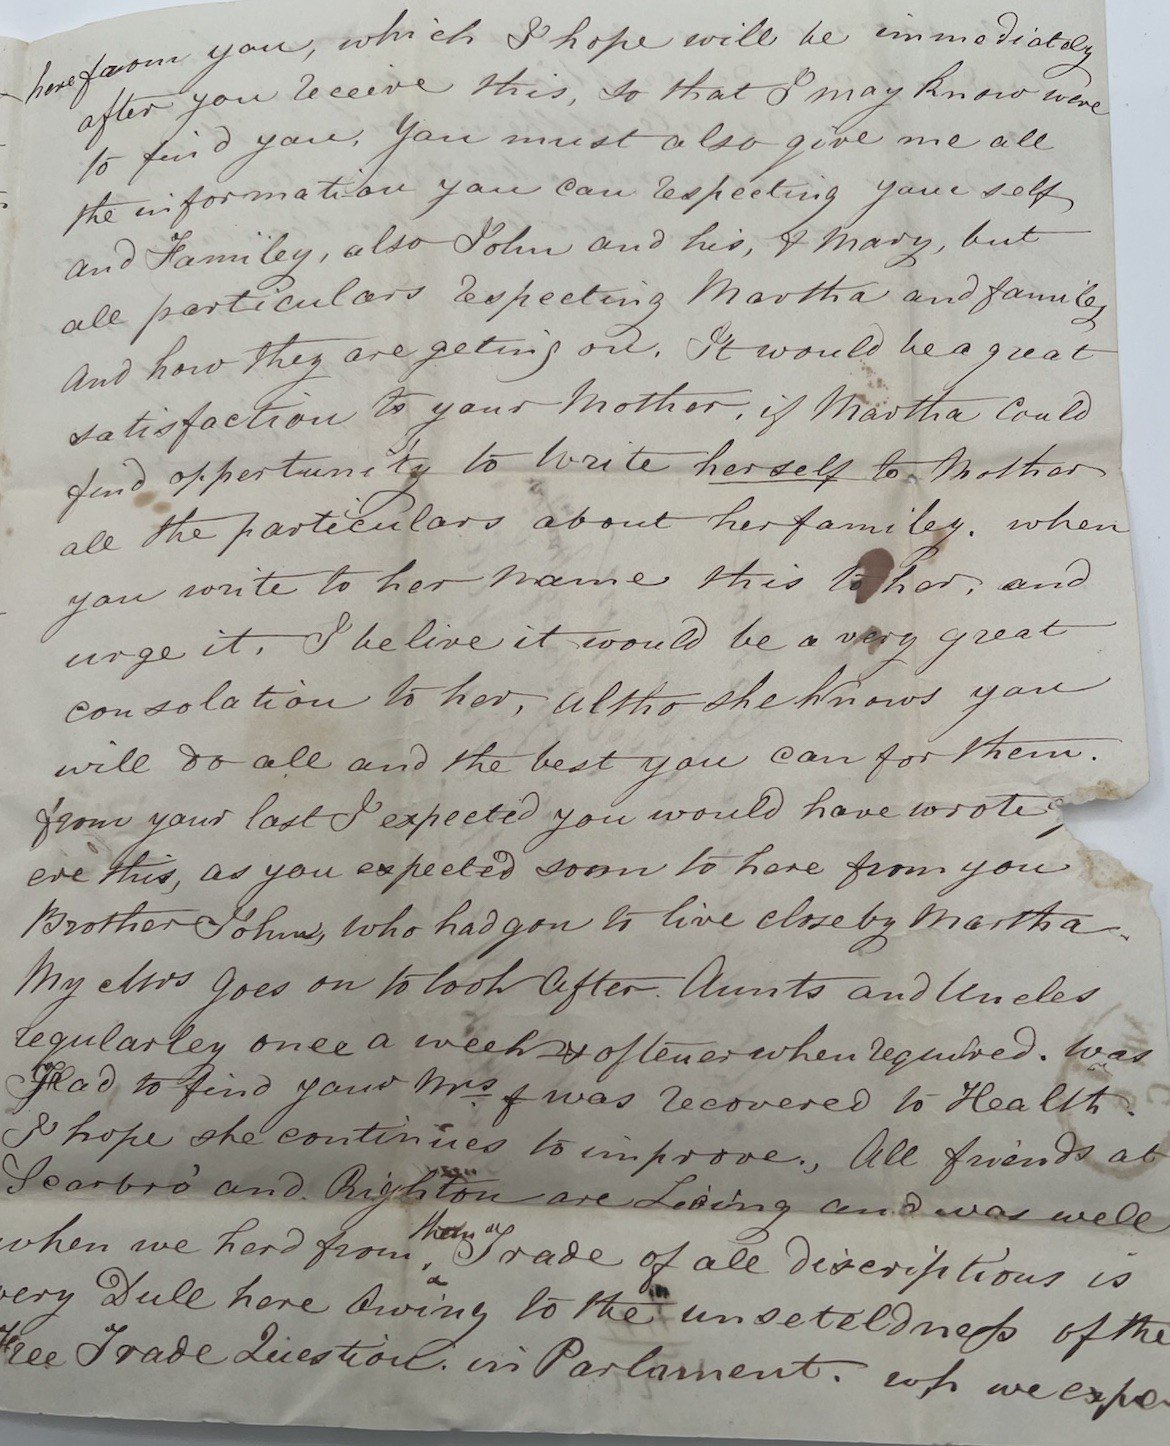 here from you, which I hope will be immediately
after you receive this, so that I may know were
to find you. You must also give me all
the information you can respecting your self
and Familey, also John and his, & Mary, but
all particulars respecting Martha and familey
And how they are geting on. It would be a great
satisfaction to your Mother, if Martha Could
find oppertunity to Write herself to Mother
all the particulars about her familey. when
you write to her name this to her, and
urge it. I belive it would be a very great
consolation to her, altho she knows you
will do all and the best you can for them.
from your last I expected you would have wrote
ere this, as you expected soon to here from you
Brother John, who had gon to live close by Martha.
My Mrs Goes on to look After Aunts and Uncles
regularley once a week & oftener when required. Was
Glad to find your Mrs was recovered to Health.
I hope she continues to improve., All friends at
Scarbro' and Righton are Living and was well
when we herd from them Trade of all discriptions is
very Dull here Owing to the unseteldness of the
Free Trade Question in Parlament. we